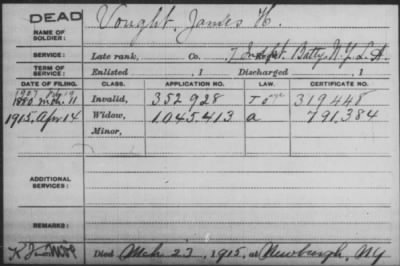 DEAD
NAME OF SOLDIER: Vought, James H.
SERVICE: Late rank, Co. 7 Indpt. Batty. N.Y. L.A.
TERM OF SERVICE: Enlisted , 1 Discharged , 1
DATE OF FILING. CLASS. APPLICATION NO. LAW. CERTIFICATE NO.
1907
1880 Mch. 11 Invalid, 352 928 319448
1915, Apr 14 Widow, 1.045.413 a 791,384
Minor,
ADDITIONAL SERVICES:
REMARKS:
Died Mch 23, 1915, at Newburgh, NY